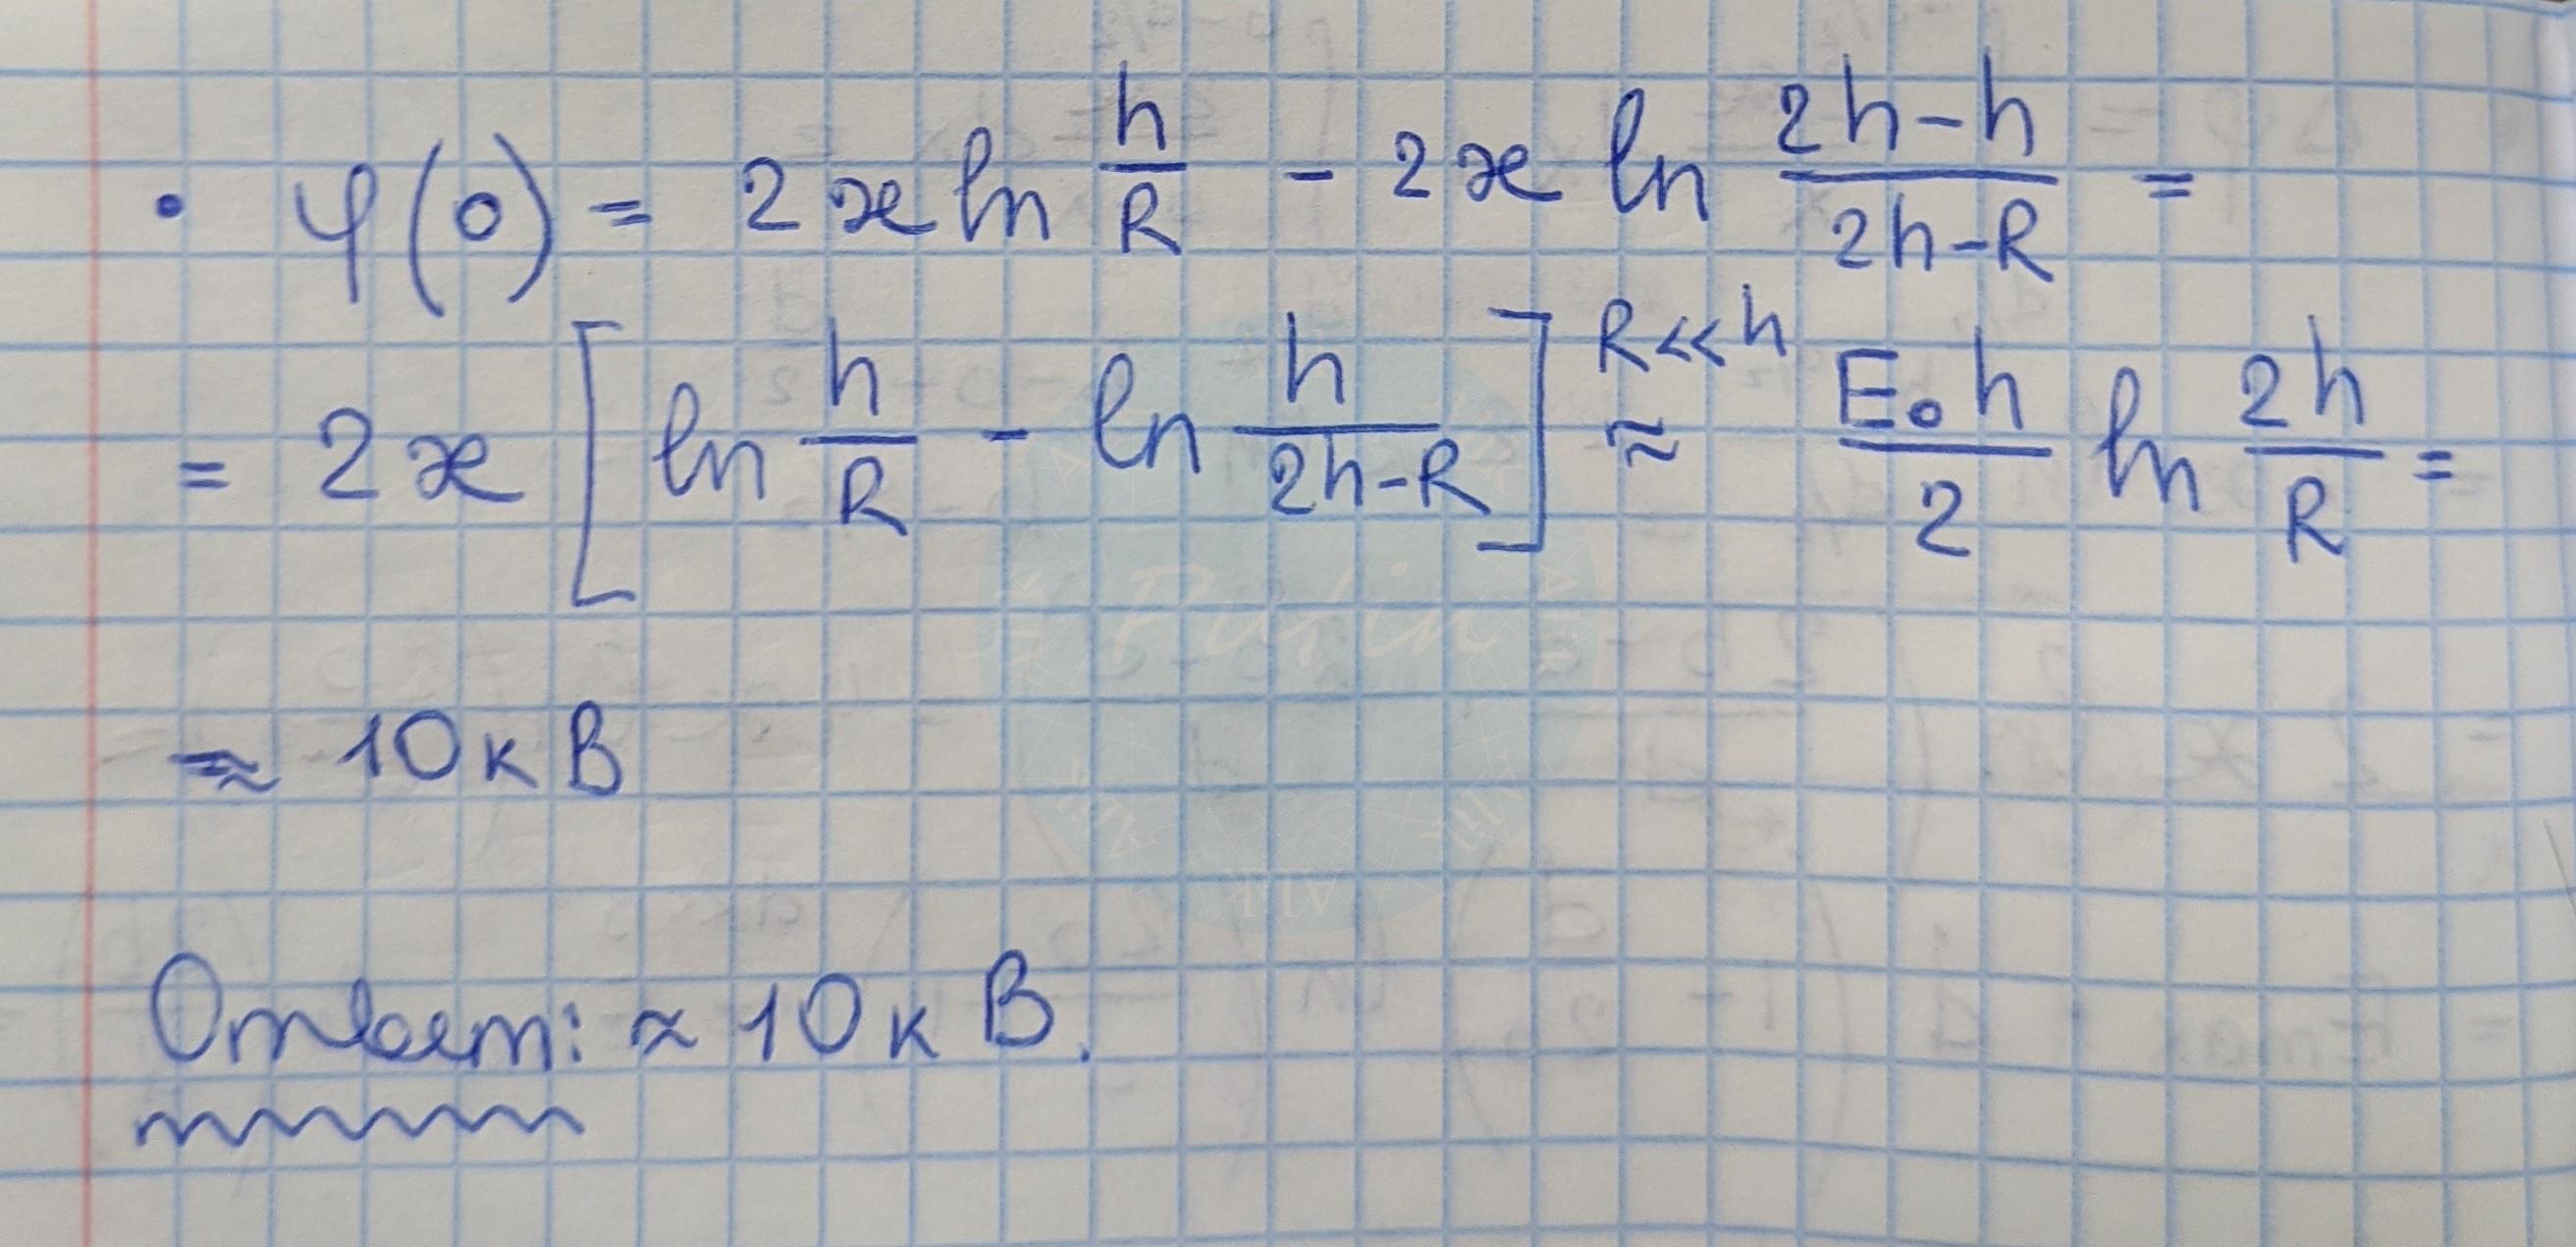 • φ(0) = 2æ ln h/R - 2æ ln (2h-h)/(2h-R) =
= 2æ [ ln h/R - ln h/(2h-R) ] R<<h ≈ E₀h/2 ln 2h/R =
≈ 10 кВ
Putin
Ответ: ≈ 10 кВ.